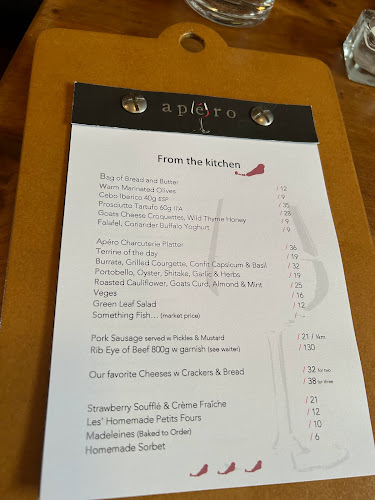 apéro
From the kitchen
Bag of Bread and Butter / 12
Warm Marinated Olives / 9
Cebo Iberico 40g ESP / 35
Prosciutto Tartufo 60g ITA / 28
Goats Cheese Croquettes, Wild Thyme Honey / 9
Falafel, Coriander Buffalo Yoghurt / 9
Apéro Charcuterie Platter / 36
Terrine of the day / 19
Burrata, Grilled Courgette, Confit Capsicum & Basil / 32
Portobello, Oyster, Shitake, Garlic & Herbs / 19
Roasted Cauliflower, Goats Curd, Almond & Mint / 25
Veges / 16
Green Leaf Salad / 12
Something Fish... (market price) / -
Pork Sausage served w Pickles & Mustard / 21 / ¼m
Rib Eye of Beef 800g w garnish (see waiter) / 130
Our favorite Cheeses w Crackers & Bread / 32 for two
/ 38 for three
Strawberry Soufflé & Crème Fraîche / 21
Les' Homemade Petits Fours / 12
Madeleines (Baked to Order) / 10
Homemade Sorbet / 6